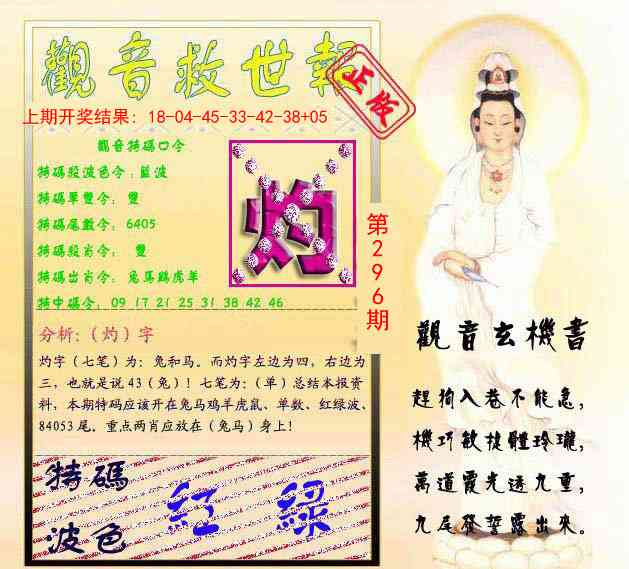 觀音救世報
正版
上期开奖结果：18-04-45-33-42-38+05
觀音特碼口令
特碼段波色令：藍波
特碼單雙令： 雙
特碼尾數令：6405
特碼段肖令： 雙
特碼出肖令：兔马鷄虎羊
特中碼令：09 17 21 25 31 38 42 46
灼
第296期
分析:（灼）字
灼字（七笔）为：兔和马。而灼字左边为四，右边为
三，也就是说 43（兔）！七笔为：（单）总结本报资
料，本期特码应该开在兔马鸡羊虎鼠、单数、红绿波、
84053 尾。重点两肖应放在（兔马）身上！
特碼
波色
紅 綠
觀音玄機書
趕狗入巷不能急，
機巧敏捷體玲瓏，
萬道霞光透九重，
九尾發誓露出來。